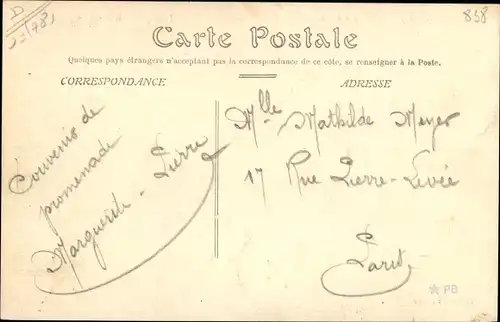 D
J=(78)
838
Carte Postale
Quelques pays étrangers n'acceptant pas la correspondance de ce côté, se renseigner à la Poste.
CORRESPONDANCE
ADRESSE
Souvenir de
promenade
Marguerite - Pierre
Mlle Mathilde Meyer
17 Rue Pierre-Levée
Paris
PB